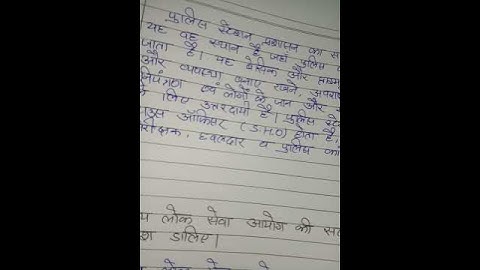 पुलिस स्टेशन प्रशासन का स
यह वह स्थान है जहाँ पुलिस
जाता है। यह बेसिक और
और व्यवस्था बनाए रखने, अपराध
एवं लोगों के जान और
के लिए उत्तरदायी है। पुलिस स्टे
ऑफिसर (S.H.O) होता है,
हवलदार व पुलिस कां
लोक सेवा आयोग की
डालिए।